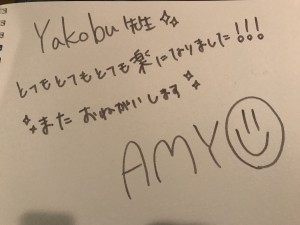 Yakobu先生✨
とてもとてもとても楽になりました!!!
✨またおねがいします✨
AMY☺